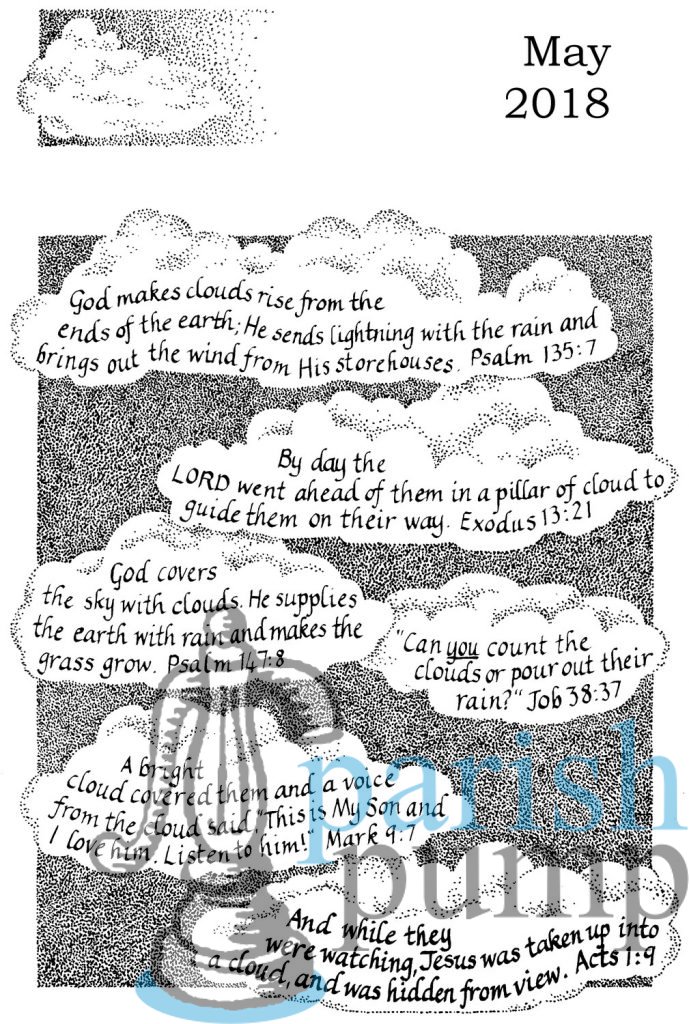 May
2018
God makes clouds rise from the
ends of the earth; He sends lightning with the rain and
brings out the wind from His storehouses. Psalm 135:7
By day the
LORD went ahead of them in a pillar of cloud to
guide them on their way. Exodus 13:21
God covers
the sky with clouds. He supplies
the earth with rain and makes the
grass grow. Psalm 147:8
"Can you count the
clouds or pour out their
rain?" Job 38:37
A bright
cloud covered them and a voice
from the cloud said, "This is My Son and
I love him. Listen to him!" Mark 9:7
parish
pump
And while they
were watching, Jesus was taken up into
a cloud, and was hidden from view. Acts 1:9